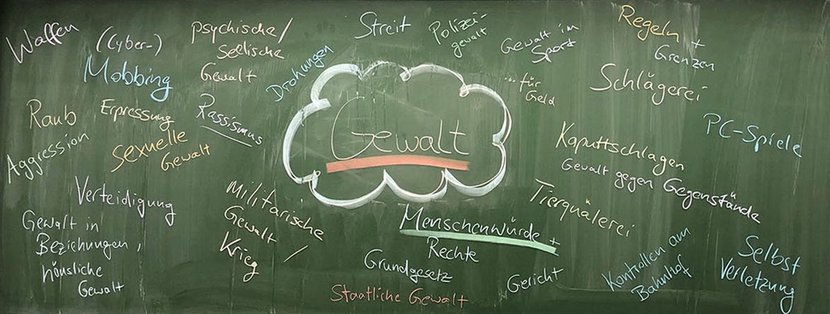 Waffen
(Cyber-)
Mobbing
psychische/
Seelische
Gewalt
Drohungen
Streit
Polizei-
gewalt
Gewalt im
Sport
... für
Geld
Regeln +
Grenzen
Schlägerei
Raub
Erpressung
Rassismus
Aggression
sexuelle
Gewalt
Gewalt
Kaputtschlagen
Gewalt gegen Gegenstände
PC-Spiele
Verteidigung
Gewalt in
Beziehungen,
häusliche
Gewalt
militärische
Gewalt /
Krieg
Menschenwürde +
Rechte
Grundgesetz
Staatliche Gewalt
Tierquälerei
Gericht
Kontrollen am
Bahnhof
Selbst
Verletzung